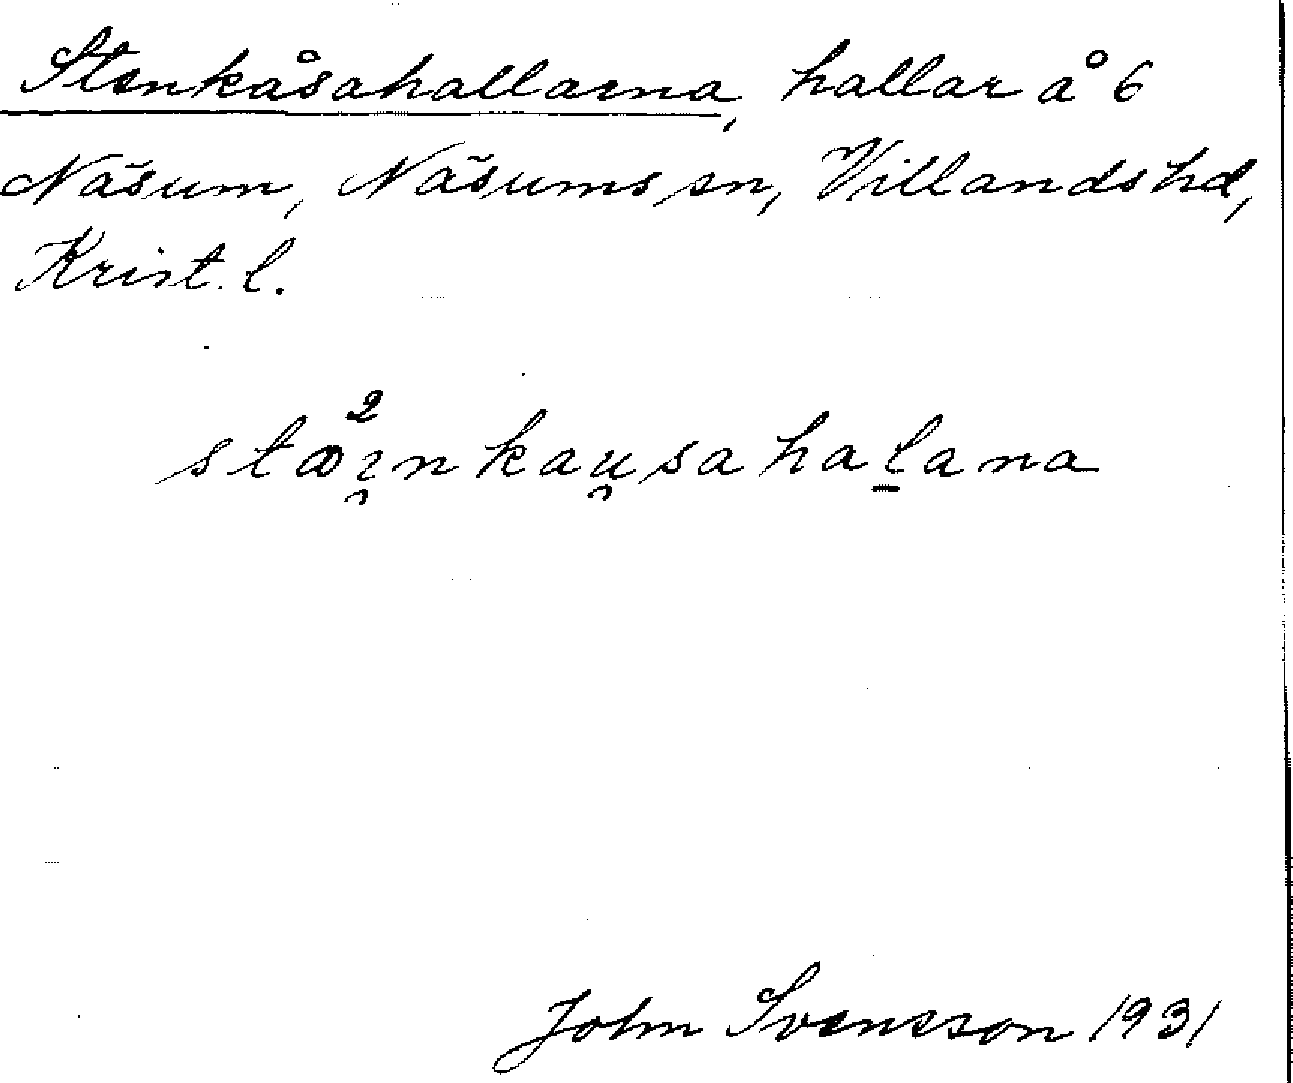 Stenkåsahallarna, hallar å 6
Näsum, Näsums sn, Villands hd,
Krist. l.
stæ²ı̯nkau̯saha̱lana
John Svensson 1931